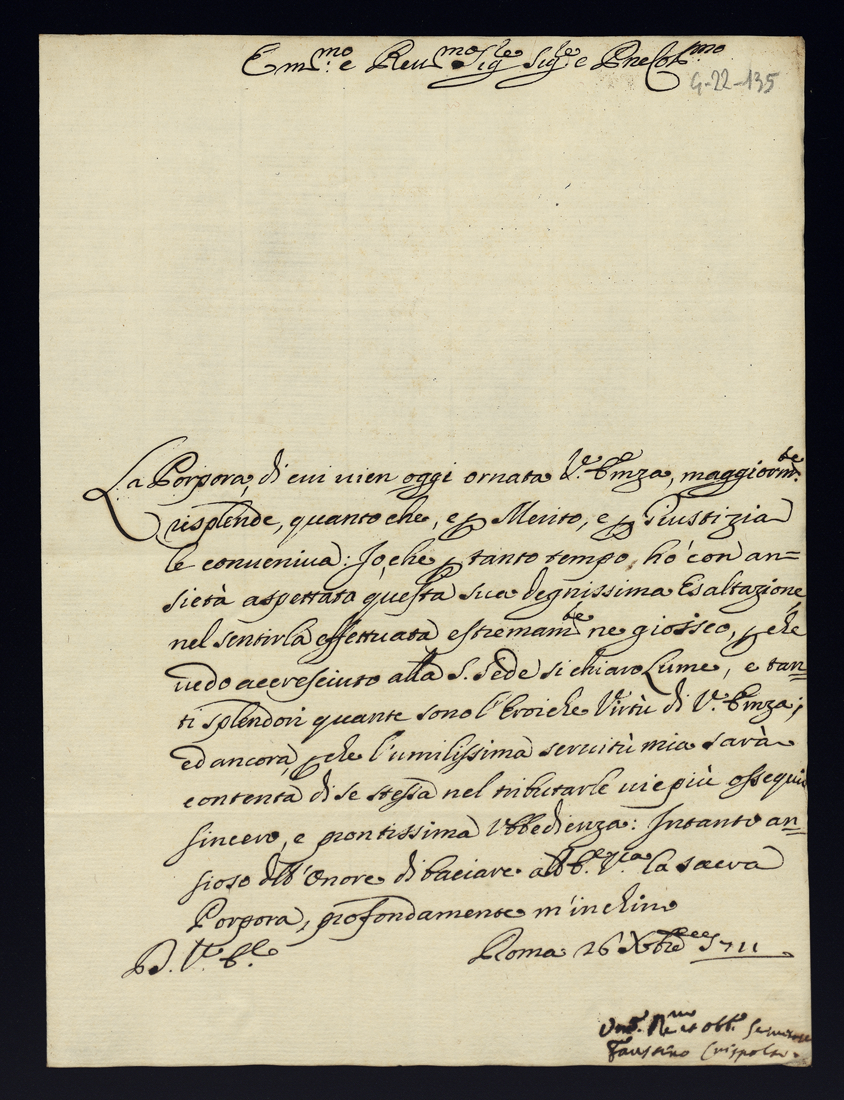 Em.mo e Reu.mo Sig.re Sig.re e Pne Col.mo
G-22-135
La Porpora, di cui uien oggi ornata V.a Emza, maggiorm.te
risplende, quanto che, e p Merito, e p Giustizia
le conueniua: Io, che p tanto tempo, hò con an=
sietà aspettata questa sua degnissima Esaltazione,
nel sentirla effettuata estremam.te ne gioisco, p che
uedo accresciuto alla S. Sede si chiaro Lume, e tan=
ti splendori quante sono l'Eroiche Virtù di V.a Emza;
ed ancora, p che l'umilissima seruitù mia sarà
contenta di se stessa nel tributarle uie più ossequio
sincero, e prontissima Vbbedienza: Intanto an=
sioso dell'Onore di baciare all'E.za V.ra la sacra
Porpora, profondamente m'inchino
D. V. E.
Roma 26 Xbre 1711
Um.o et obb. Seruitore
Faustino Crispolti